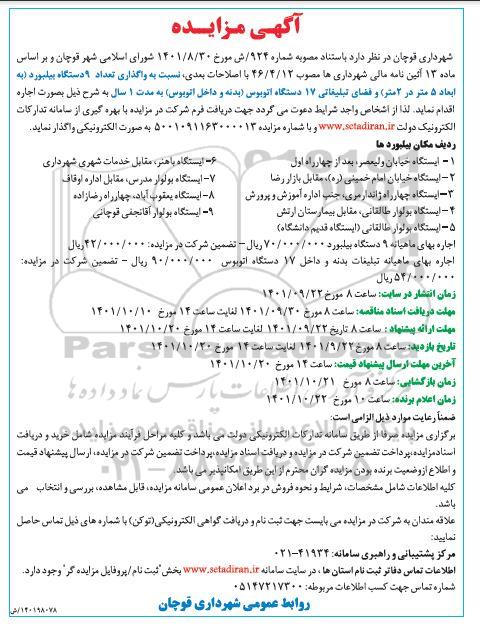 آگهی مزایده
شهرداری قوچان در نظر دارد باستناد مصوبه شماره ۹۲۴/ش مورخ ۱۴۰۱/۸/۳۰ شورای اسلامی شهر قوچان و بر اساس
ماده ۱۳ آئین نامه مالی شهرداری ها مصوب ۴۶/۴/۱۲ با اصلاحات بعدی، نسبت به واگذاری تعداد ۹دستگاه بیلبورد (به
ابعاد ۵ متر در ۲متر) و فضای تبلیغاتی ۱۷ دستگاه اتوبوس (بدنه و داخل اتوبوس) به مدت ۱ سال به شرح ذیل بصورت اجاره
اقدام نماید. لذا از اشخاص واجد شرایط دعوت می گردد جهت دریافت فرم شرکت در مزایده با بهره گیری از سامانه تدارکات
الکترونیک دولت www.setadiran.ir و با شماره مزایده ۵۰۰۱۰۹۱۱۶۳۰۰۰۰۱۳ به صورت الکترونیکی واگذار نماید.
ردیف مکان بیلبورد ها
۱- ایستگاه خیابان ولیعصر، بعد از چهارراه اول
۲- ایستگاه خیابان امام خمینی (ره)، مقابل بازار رضا
۳- ایستگاه چهارراه ژاندارمری، جنب اداره آموزش و پرورش
۴- ایستگاه بولوار طالقانی، مقابل بیمارستان ارتش
۵- ایستگاه بولوار طالقانی (ایستگاه قدیم دانشگاه)
۶- ایستگاه باهنر، مقابل خدمات شهری شهرداری
۷- ایستگاه بولوار مدرس، مقابل اداره اوقاف
۸- ایستگاه یعقوب آباد، چهارراه رضازاده
۹- ایستگاه بولوار آقانجفی قوچانی
اجاره بهای ماهیانه ۹ دستگاه بیلبورد ۷۰/۰۰۰/۰۰۰ ریال – تضمین شرکت در مزایده: ۴۲/۰۰۰/۰۰۰ ریال
اجاره بهای ماهیانه تبلیغات بدنه و داخل ۱۷ دستگاه اتوبوس ۹۰/۰۰۰/۰۰۰ ریال – تضمین شرکت در مزایده:
۵۴/۰۰۰/۰۰۰ ریال
زمان انتشار در سایت: ساعت ۸ مورخ ۱۴۰۱/۰۹/۲۲
مهلت دریافت اسناد مناقصه: ساعت ۸ مورخ ۱۴۰۱/۰۹/۳۰ لغایت ساعت ۱۴ مورخ ۱۴۰۱/۱۰/۱۰
مهلت ارائه پیشنهاد : ساعت ۸ تاریخ ۱۴۰۱/۰۹/۲۲ لغایت ساعت ۱۴ مورخ ۱۴۰۱/۱۰/۲۰
تاریخ بازدید: ساعت ۸ مورخ ۱۴۰۱/۹/۲۲ لغایت ساعت ۱۴ مورخ ۱۴۰۱/۱۰/۲۰
آخرین مهلت ارسال پیشنهاد قیمت: ساعت ۱۴ مورخ ۱۴۰۱/۱۰/۲۰
زمان بازگشایی: ساعت ۸ مورخ ۱۴۰۱/۱۰/۲۱
زمان اعلام برنده: ساعت ۱۰ مورخ ۱۴۰۱/۱۰/۲۲
ضمناً رعایت موارد ذیل الزامی است:
برگزاری مزایده صرفا از طریق سامانه تدارکات الکترونیکی دولت می باشد و کلیه مراحل فرآیند مزایده شامل خرید و دریافت
اسناد مزایده، پرداخت تضمین شرکت در مزایده و دریافت اسناد مزایده، پرداخت تضمین شرکت در مزایده، ارسال پیشنهاد قیمت
و اطلاع ازوضعیت برنده بودن مزایده گران محترم از این طریق امکانپذیر می باشد
کلیه اطلاعات شامل مشخصات، شرایط و نحوه فروش در برد اعلان عمومی سامانه مزایده، قابل مشاهده، بررسی و انتخاب می
باشد.
علاقه مندان به شرکت در مزایده می بایست جهت ثبت نام و دریافت گواهی الکترونیکی (توکن) با شماره های ذیل تماس حاصل
نمایید:
مرکز پشتیبانی و راهبری سامانه: ۴۱۹۳۴-۰۲۱
اطلاعات تماس دفاتر ثبت نام استان ها ، در سایت سامانه www.setadiran.ir بخش"ثبت نام/پروفایل مزایده گر" وجود دارد.
شماره تماس جهت کسب اطلاعات مربوطه: ۰۵۱۴۷۲۱۷۳۰۰
روابط عمومی شهرداری قوچان
۱۴۰۱۹۸۰۷۸/ش